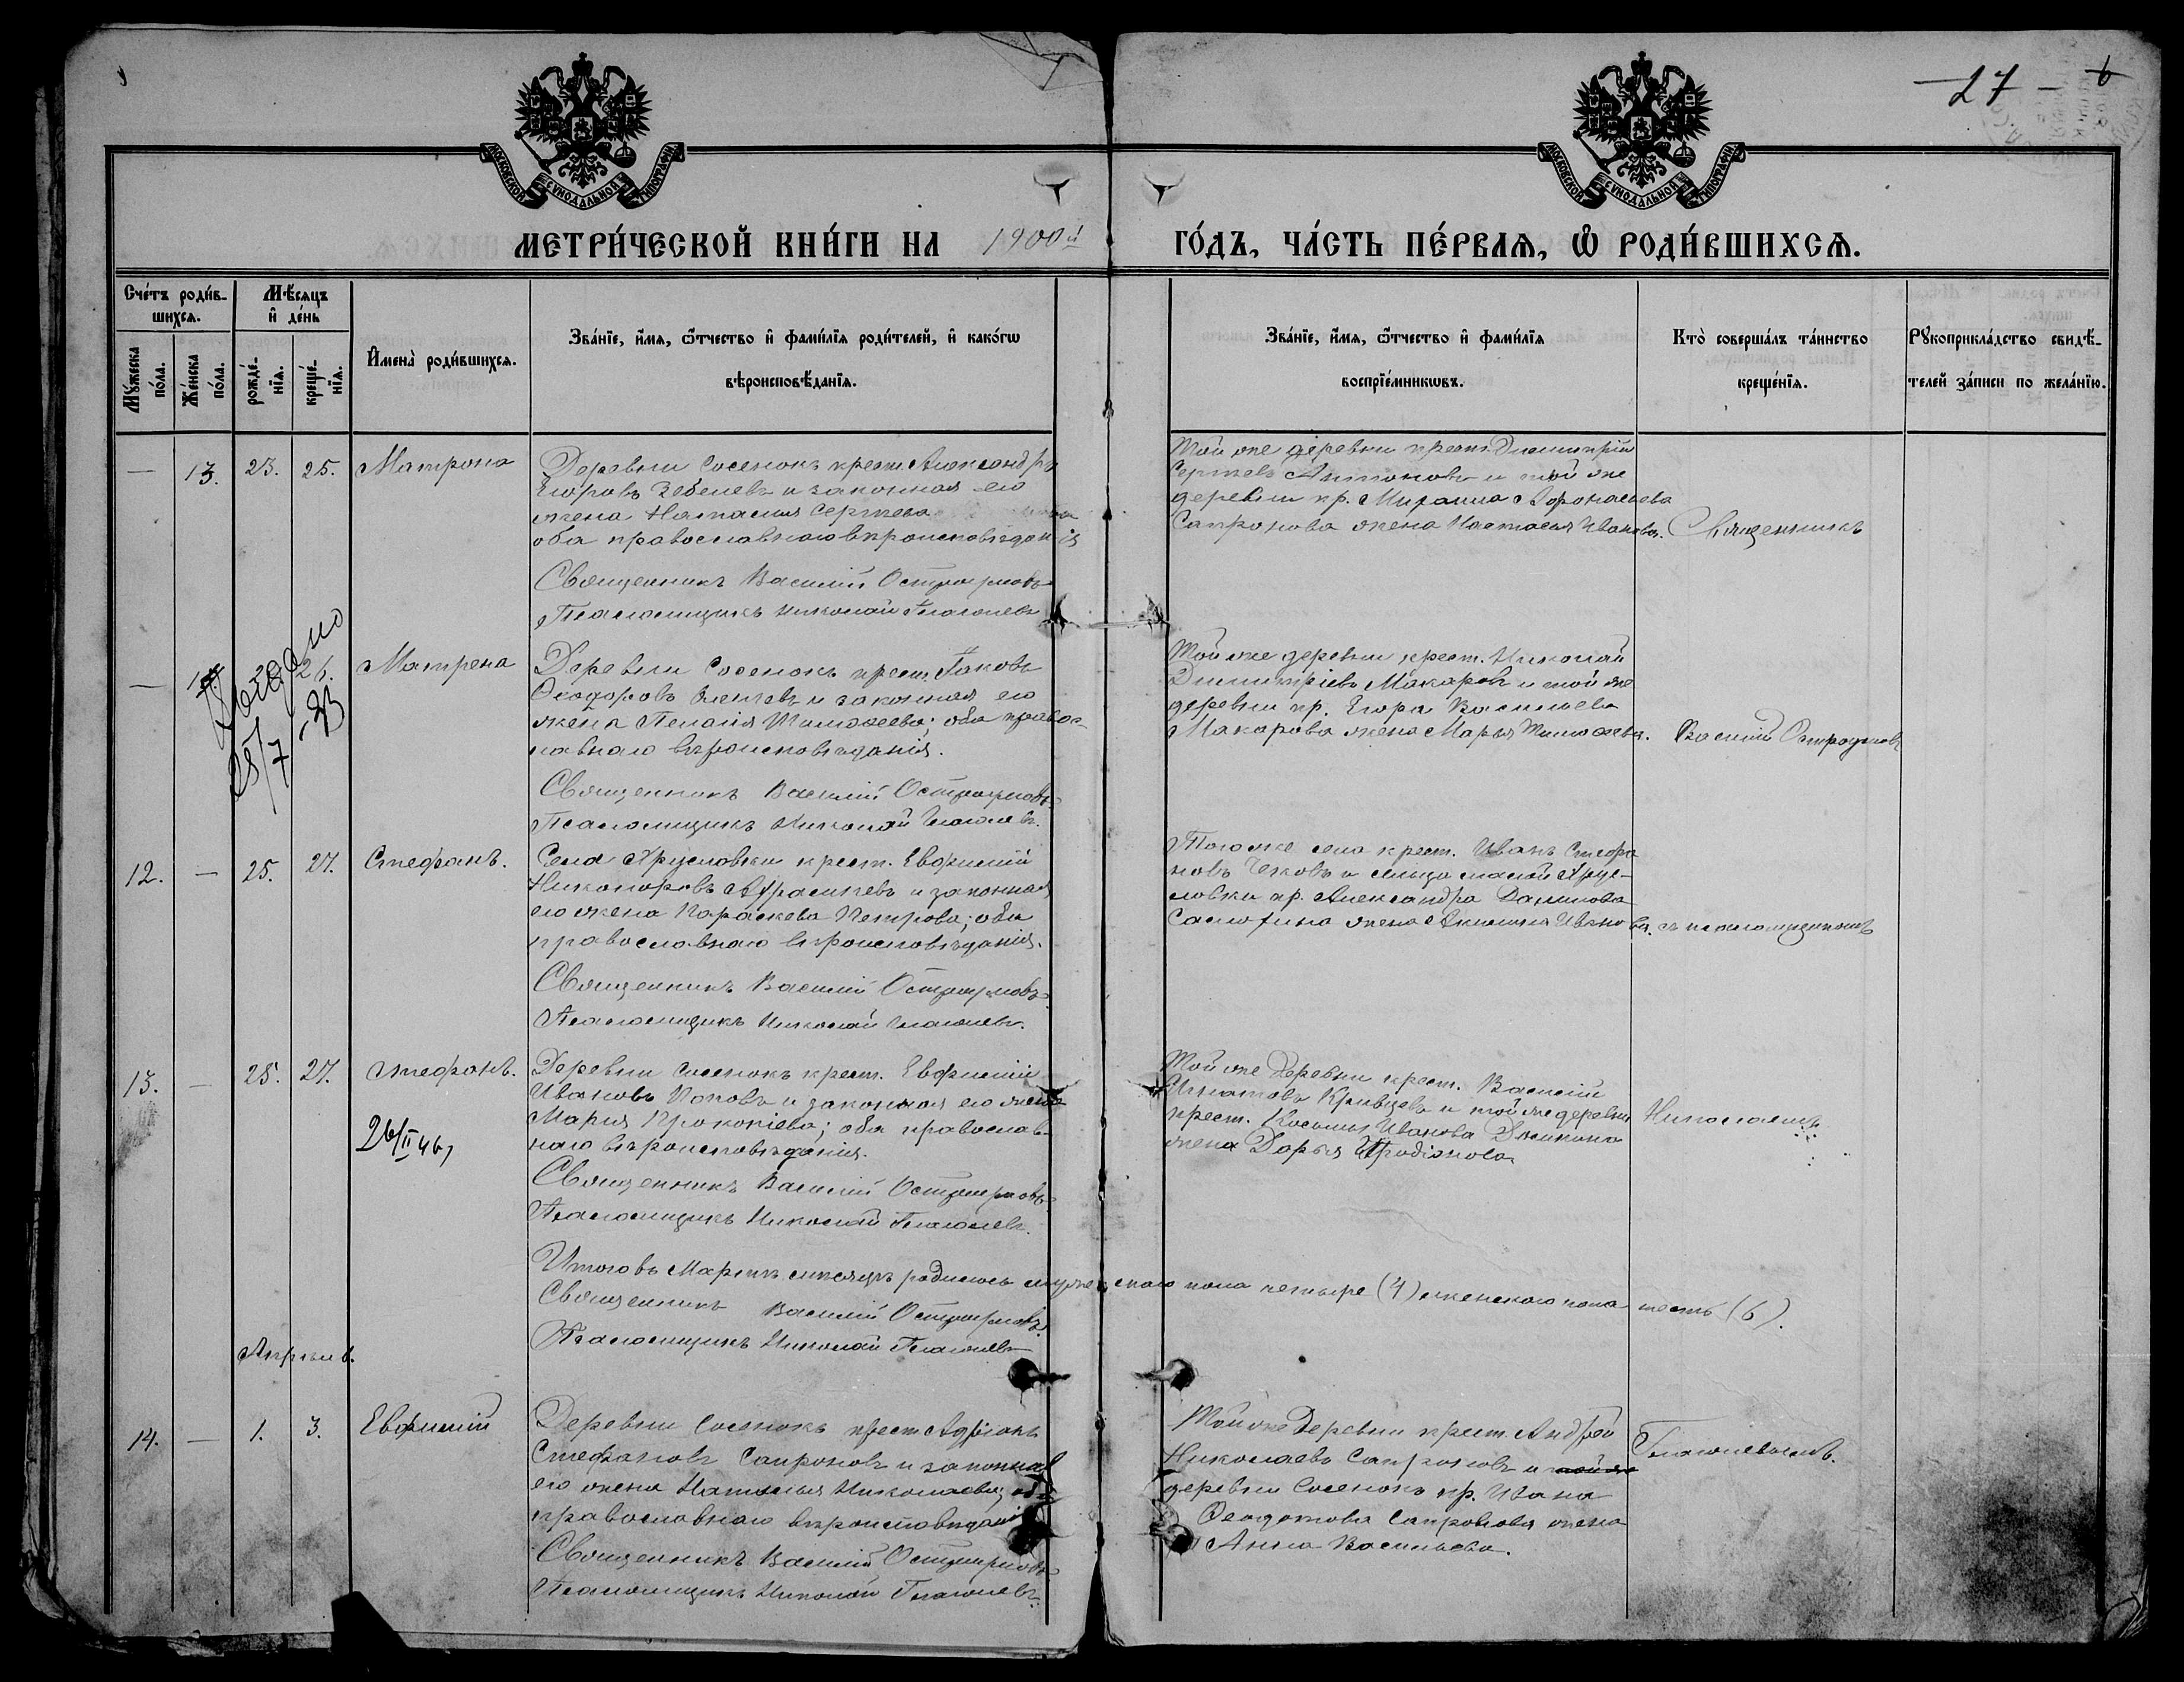 27
МОСКОВСКОЙ СѴНОДАЛЬНОЙ ТИПОГРАФІИ
МОСКОВСКОЙ СѴНОДАЛЬНОЙ ТИПОГРАФІИ
МЕТРИ́ЧЕСКОЙ КНИ́ГИ НА 1900й ГО́ДЪ, ЧА́СТЬ ПЕ́РВАЯ, Ѡ РОДИ́ВШИХСЯ.
Сче́тъ роди́в-
шихся.
Му́жеска
по́ла.
Же́нска
по́ла.
Мѣ́сяцъ
и де́нь
рожде́-
нїя.
креще́-
нїя.
Имена̀ роди́вшихся.
Зва́нїе, и́мя, ѻ҆́тчество и фами́лїя роди́телей, и како́гѡ
вѣроисповѣ́данїя.
Зва́нїе, и́мя, ѻ҆́тчество и фами́лїя
воспрїе́мникѡвъ.
Кто̀ соверша́лъ та́инство
креще́нїя.
Рукоприкла́дство свидѣ́-
телей за́писи по жела́нїю.
— 13. 23. 25. Матрона
Деревни Сосенокъ крест. Александръ
Егоровъ Зебелевъ и законная его
жена Наталия Сергеева
оба православнаго вѣроисповѣданія
Священникъ Василій Остроумовъ
Псаломщикъ Николай Глаголевъ
Той же деревни крест. Димитрій
Сергеевъ Антоновъ и той же
деревни кр. Михаила Афонасьева
Сапронова жена Настасья Иванова.
Священникъ
— 26. Матрена
28/7
Деревни Сосенокъ крест. Іаковъ
Ѳеодоровъ и законная его
жена Пелагія Тимофеева; оба правос-
лавнаго вѣроисповѣданія.
Священникъ Василій Остроумовъ.
Псаломщикъ Николай Глаголевъ.
Той же деревни крест. Николай
Димитріевъ Макаровъ и той же
деревни кр. Егора Васильева
Макарова жена Марья Тимофеева.
Василій Остроумовъ
12. — 25. 27. Стефанъ.
Села Арусловки крест. Евфимій
Никоноровъ и законная
его жена Параскева Петрова; оба
православнаго вѣроисповѣданія.
Священникъ Василій Остроумовъ.
Псаломщикъ Николай Глаголевъ.
Того же села крест. Иванъ Стефа
новъ и
ловки кр. Александра Данилова
жена Акилина Иванова.
съ псаломщикомъ
13. — 25. 27. Стефанъ.
26/II 46,
Деревни Сосенокъ крест. Евфимій
Ивановъ Поповъ и законная его жена
Мария Прокопіева; оба православ-
наго вѣроисповѣданія.
Священникъ Василій Остроумовъ
Псаломщикъ Николай Глаголевъ.
Той же деревни крест. Василій
Игнатовъ Кривцовъ и той же деревни
крест. Косьмы Иванова
жена Дарья Иродіонова
Николаемъ
Итого въ Мартѣ мѣсяцѣ родилось мужескаго пола четыре (4) женскаго пола шесть (6).
Священникъ Василій Остроумовъ.
Псаломщикъ Николай Глаголевъ
Апрель.
14. — 1. 3. Евфимій
Деревни Сосенокъ крест. Адріанъ
Стефановъ Сапроновъ и законная
его жена Наталья Николаева; оба
православнаго вѣроисповѣданія
Священникъ Василій Остроумовъ
Псаломщикъ Николай Глаголевъ.
Той же деревни крест. Андрей
Николаевъ Сапроновъ и той же
деревни Сосенокъ кр. Ивана
Ѳеодотова Сапронова жена
Анна Васильева.
Глаголевымъ.